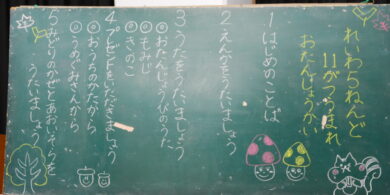 れいわ5ねんど
11がつうまれ
おたんじょうかい
1 はじめのことば
2 えんかをうたいましょう
3 うたをうたいましょう
◎おたんじょうびのうた
◎もみじ
◎きのこ
4 プレゼントをいただきましょう
◎おうちのかたから
◎うめぐみさんから
5 みどりのかぜとあおいそらを
うたいましょう